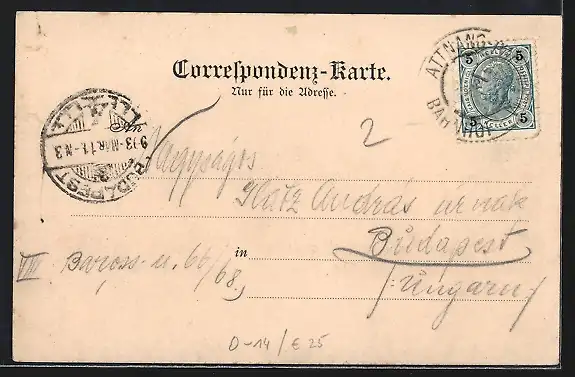 Correspondenz-Karte.
Nur für die Adresse.
ATTNANG
BAHNHOF
5 5
5 5
BUDAPEST
903-MAR 11-N3
An
2
Nagyságos
Katz András úrnak
Budapest
in
VIII Baross-u. 66/68,
/:Ungarn/
0-14/€25